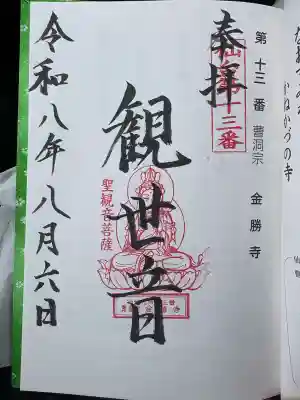 かねかづの寺
第十三番 曹洞宗 金勝寺
奉拝
十三番
観世音
聖観音菩薩
令和八年八月六日